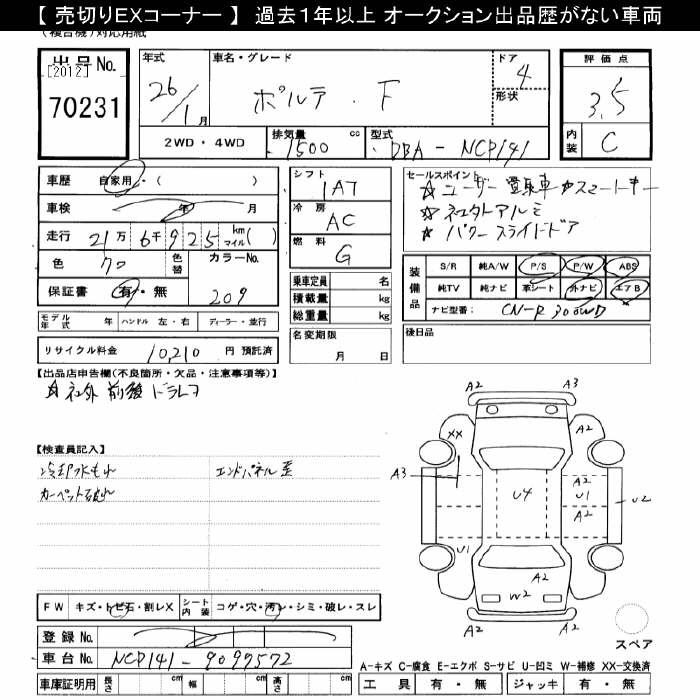 【 売切りEXコーナー 】 過去1年以上 オークション出品歴がない車両
(複合機)対応用紙
出品No.
[2012]
70231
年式 26/1月
車名・グレード ポルテ・F
ドア 4
形状
評価点 3.5
内装 C
2WD・4WD 排気量 1500 cc 型式 DBA - NCP141
車歴 自家用・( )
車検 年 月
走行 21万 6千 925 km マイル( )
色 クロ 色替 カラーNo. 209
保証書 有・無
シフト IAT
冷房 AC
燃料 G
乗車定員 名
積載量 kg
総重量 kg
セールスポイント
☆ユーザー買取車 ☆スマートキー
☆社外アルミ
☆パワースライドドア
装備品
S/R 純A/W P/S P/W ABS
純TV 純ナビ 革シート 外ナビ エアB
ナビ型番: CN-R300WD
モデル年式 年 ハンドル 左・右 ディーラー・並行
リサイクル料金 10,210 円 預託済
名変期限 月 日
後日品
【出品店申告欄(不良箇所・欠品・注意事項等)】
☆社外 前後 ドラレコ
【検査員記入】
冷却水もれ エンドパネル歪
カーペット破れ
A2 A3
XX A2 A2
A3 U4 A2 U1 A2 U2
U1 A2
A2
W2
A2
スペア
FW キズ・トビ石・割レX シート内装 コゲ・穴・汚レ・シミ・破レ・スレ
登録No.
車台No. NCP141-9099572
車庫証明用 長さ cm 幅 cm 高さ cm
A-キズ C-腐食 E-エクボ S-サビ U-凹ミ W-補修 XX-交換済
工具 有・無 ジャッキ 有・無